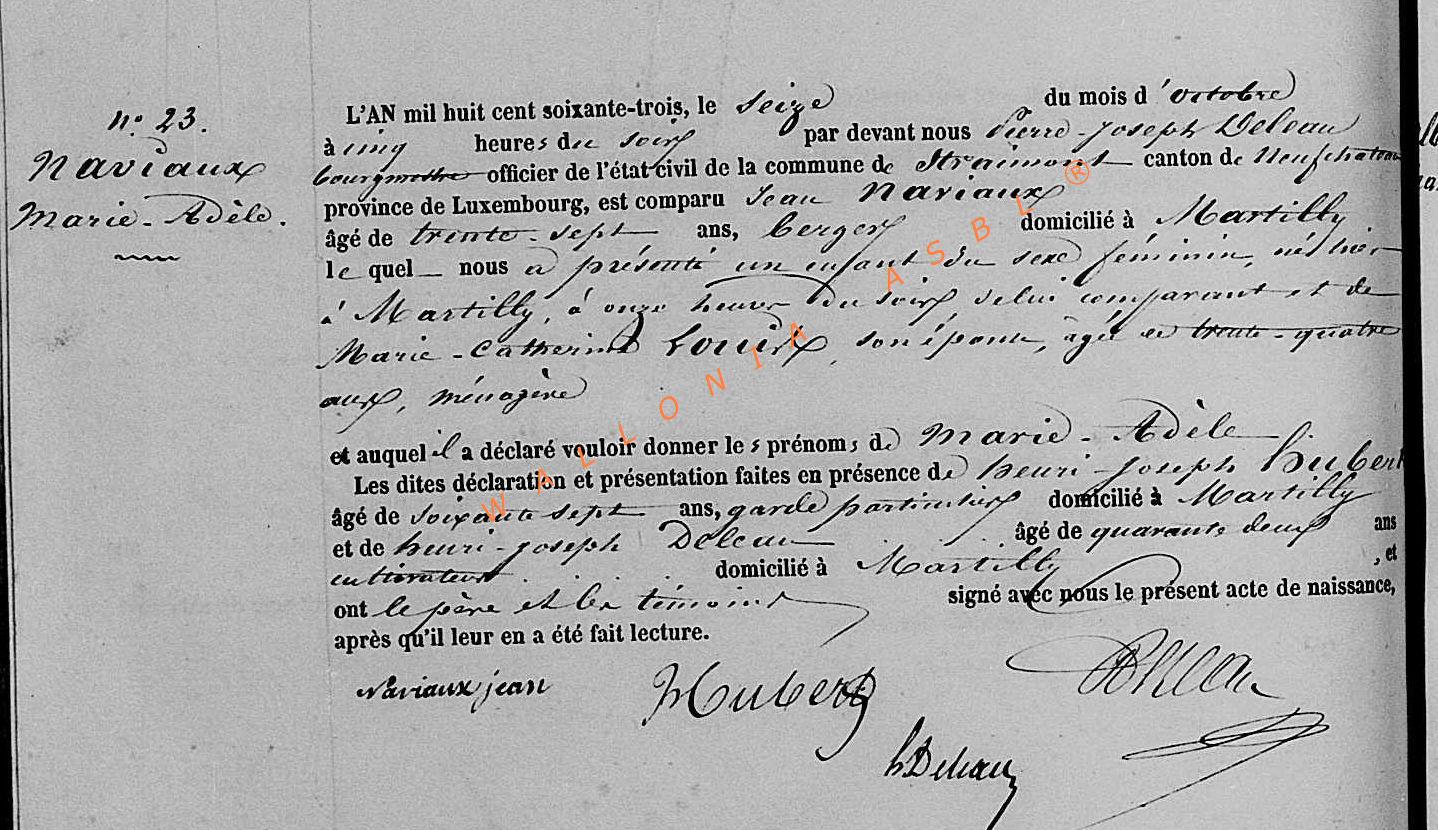 n° 23.
Naviaux
Marie-Adèle.
L'AN mil huit cent soixante-trois, le seize du mois d'octobre
à cinq heures du soir par devant nous Pierre-Joseph Deleau
bourgmestre officier de l'état civil de la commune de Straimont canton de Neufchateau
province de Luxembourg, est comparu Jean Naviaux
âgé de trente-sept ans, berger domicilié à Martilly
lequel nous a présenté un enfant du sexe féminin, né hier
à Martilly, à onze heures du soir, de lui comparant et de
Marie-Catherine Louis, son épouse, âgée de trente-quatre
ans, ménagère
et auquel il a déclaré vouloir donner les prénoms de Marie-Adèle.
Les dites déclaration et présentation faites en présence de henri-Joseph Hubert
âgé de soixante sept ans, garde particulier domicilié à Martilly
et de henri-Joseph Deleau âgé de quarante deux ans
cultivateur domicilié à Martilly, et
ont le père et les témoins signé avec nous le présent acte de naissance,
après qu'il leur en a été fait lecture.
Naviaux jean Hubert Deleau
h Deleau
WALLONIA ASBL ®